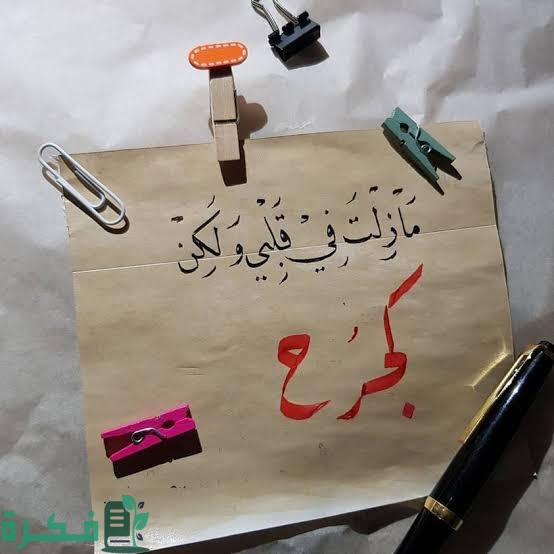 مَازِلْتَ فِيْ قَلْبِي وَلَكِنْ
كَجُرُح
فكرة